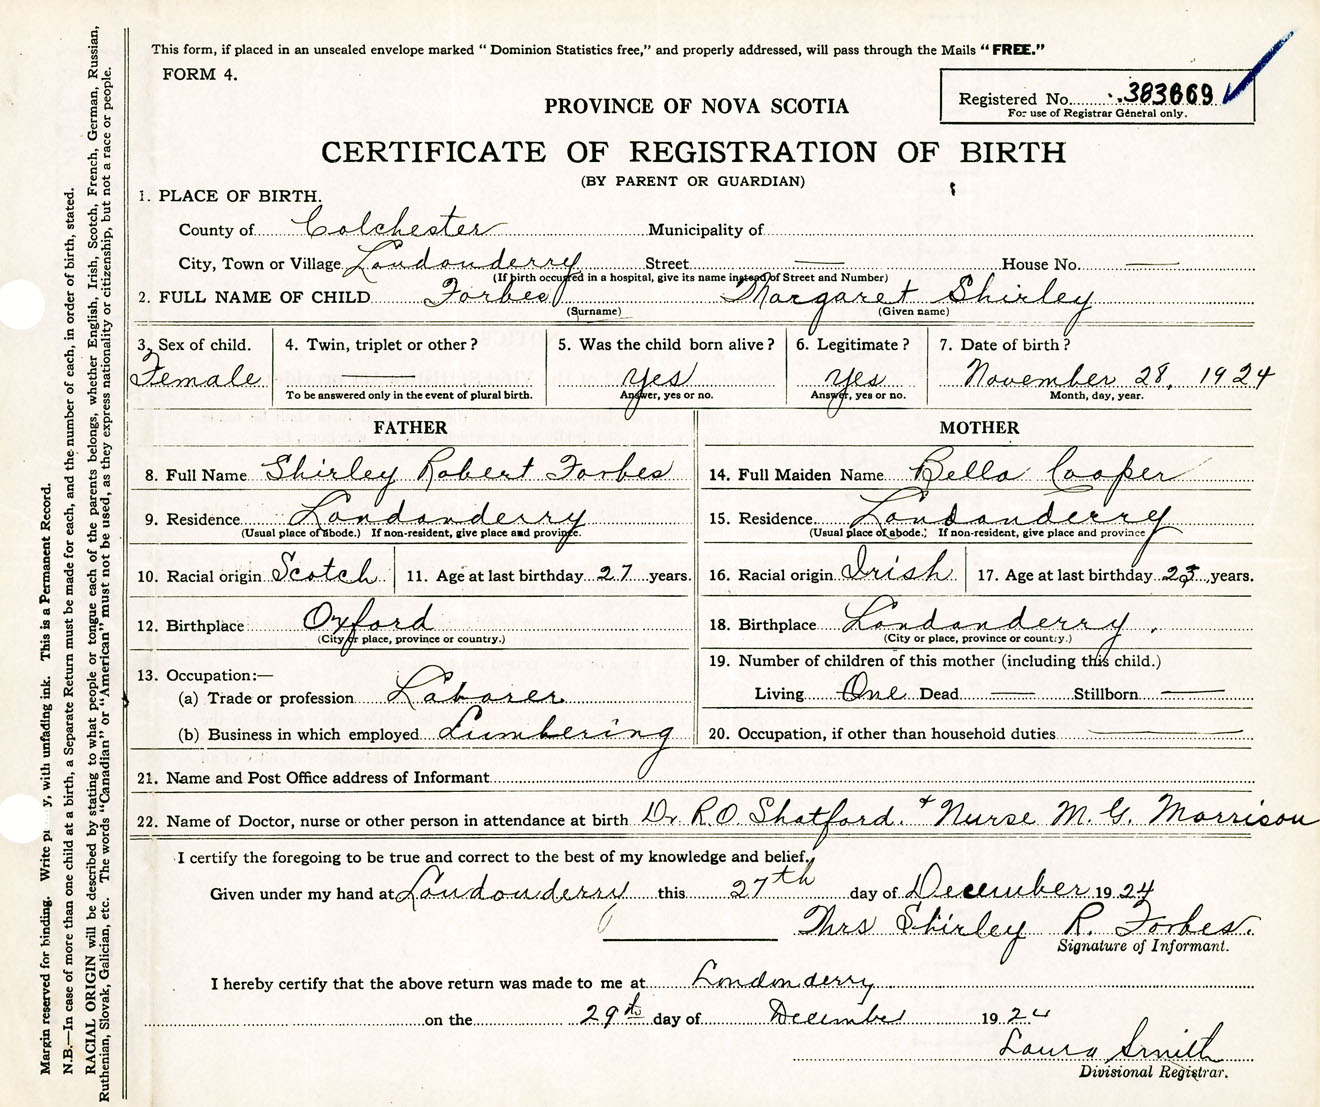 This form, if placed in an unsealed envelope marked “ Dominion Statistics free,” and properly addressed, will pass through the Mails “ FREE.”
FORM 4.
Registered No. 383669
For use of Registrar General only.
PROVINCE OF NOVA SCOTIA
CERTIFICATE OF REGISTRATION OF BIRTH
(BY PARENT OR GUARDIAN)
1. PLACE OF BIRTH.
County of Colchester Municipality of
City, Town or Village Londonderry Street — House No. —
(If birth occurred in a hospital, give its name instead of Street and Number)
2. FULL NAME OF CHILD Forbes Margaret Shirley
(Surname) (Given name)
3. Sex of child. 4. Twin, triplet or other? 5. Was the child born alive? 6. Legitimate? 7. Date of birth?
Female — Yes Yes November 28, 1924
To be answered only in the event of plural birth. Answer, yes or no. Answer, yes or no. Month, day, year.
FATHER
8. Full Name Shirley Robert Forbes
9. Residence Londonderry
(Usual place of abode.) If non-resident, give place and province.
10. Racial origin Scotch 11. Age at last birthday 27 years.
12. Birthplace Oxford
(City or place, province or country.)
13. Occupation:—
(a) Trade or profession Laborer
(b) Business in which employed Lumbering
MOTHER
14. Full Maiden Name Bella Cooper
15. Residence Londonderry
(Usual place of abode. If non-resident, give place and province
16. Racial origin Irish 17. Age at last birthday 23 years.
18. Birthplace Londonderry.
(City or place, province or country.)
19. Number of children of this mother (including this child.)
Living One Dead — Stillborn —
20. Occupation, if other than household duties —
21. Name and Post Office address of Informant
22. Name of Doctor, nurse or other person in attendance at birth Dr. R.O. Shatford. + Nurse M. G. Morrison
I certify the foregoing to be true and correct to the best of my knowledge and belief.
Given under my hand at Londonderry this 27th day of December 1924
Mrs Shirley R. Forbes.
Signature of Informant.
I hereby certify that the above return was made to me at Londonderry
on the 29th day of December 1924
Laura Smith
Divisional Registrar.
Margin reserved for binding. Write y, with unfading ink. This is a Permanent Record.
N.B.—In case of more than one child at a birth, a Separate Return must be made for each, and the number of each, in order of birth, stated.
RACIAL ORIGIN will be described by stating to what people or tongue each of the parents belongs, whether English, Irish, Scotch, French, German, Russian,
Ruthenian, Slovak, Galician, etc. The words “Canadian” or “American” must not be used, as they express nationality or citizenship, but not a race or people.